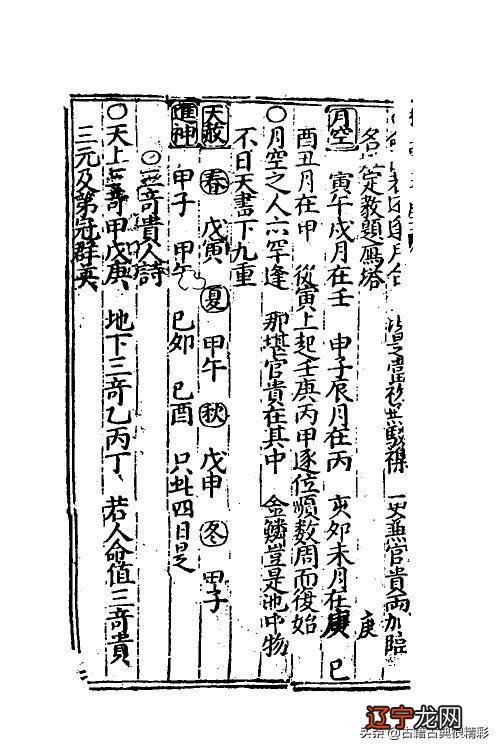 官貴兩加臨
名定教題鴈塔
庚
月空 寅午戌月在壬 申子辰月在丙 亥卯未月在庚 巳
酉丑月在甲 從寅上起壬庚丙甲逐位順數周而復始
○月空之人六罕逢 那堪官貴在其中 金鱗豈是池中物
不日天書下九重
天赦 春 戊寅 夏 甲午 秋 戊申 冬 甲子
進神 甲子 甲午 己卯 己酉 只此四日是
○三奇貴人詩
○天上三奇甲戊庚 地下三奇乙丙丁 若人命值三奇貴
三元及第冠群英
辽宁龙网
头条@古籍古典很精彩